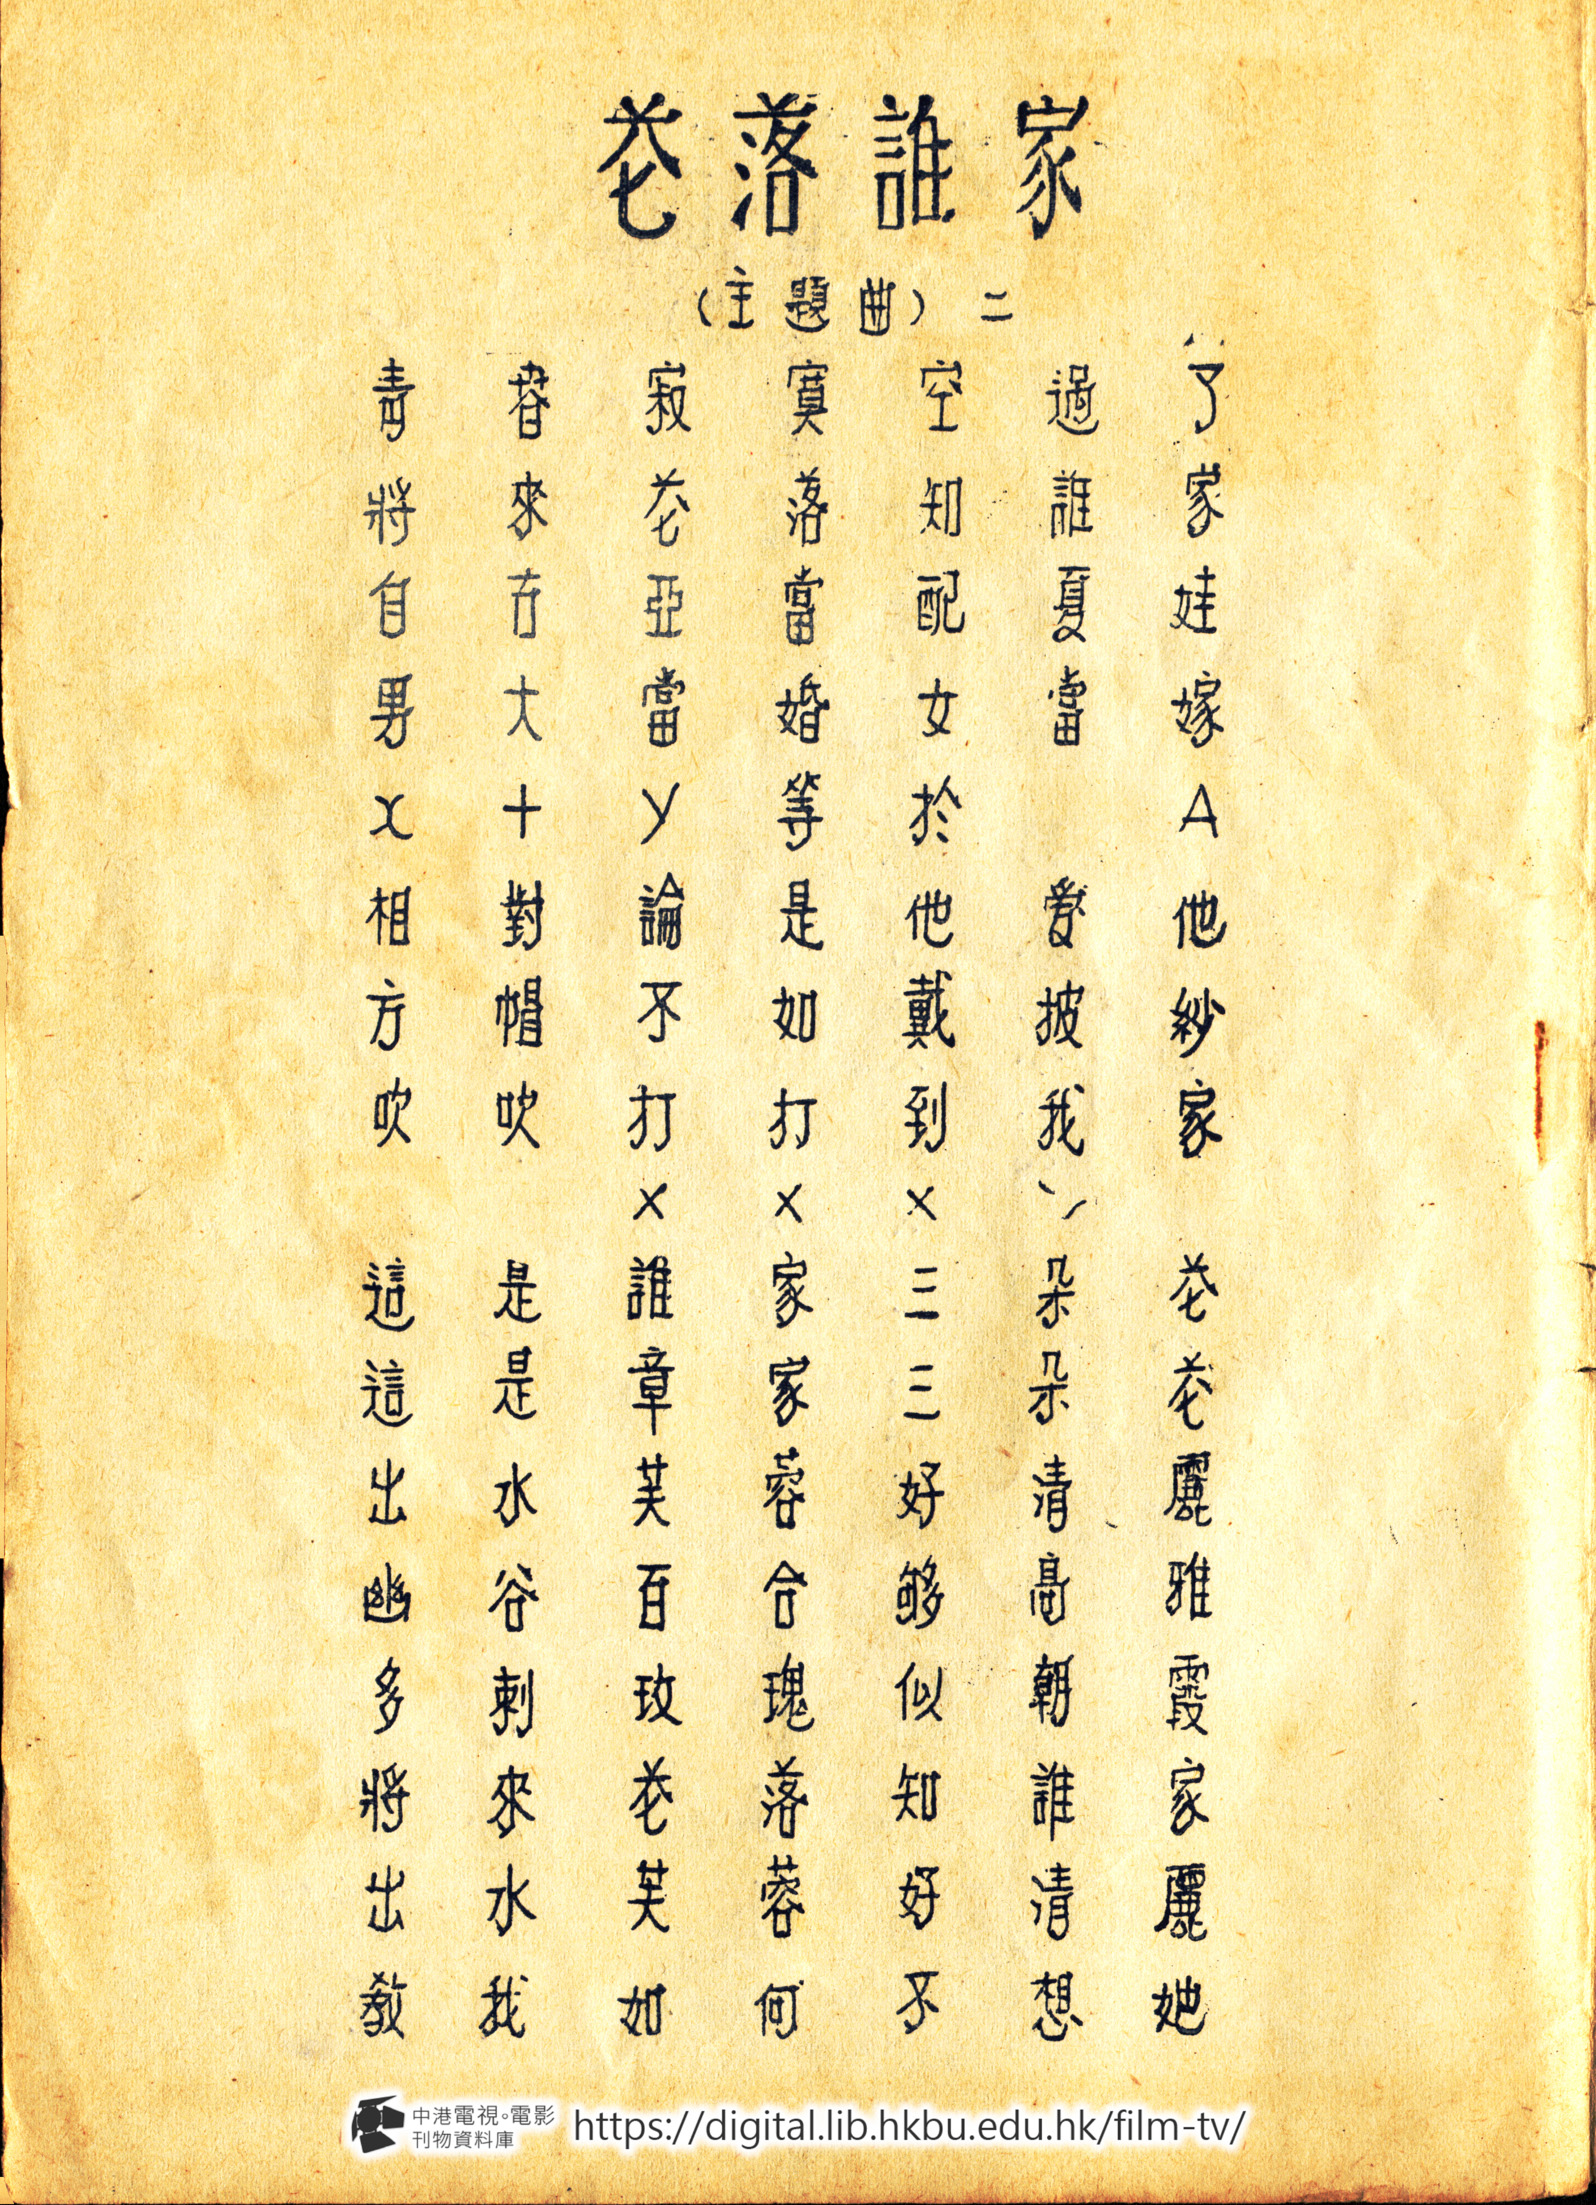 花落誰家
（主題曲）二
青春寂寞空過了
將來花落知誰家
自古亞當配夏娃
男大當婚女當嫁
X＋Y等於 A
相對論是他愛他
方帽不如戴披紗
吹吹打打到我家
× × ×
這是誰家三朵花
這是章家三朵花
出水芙蓉好清麗
幽谷百合够高雅
多刺玫瑰似朝霞
將來花落知誰家
出水芙蓉好清麗
教我如何不想她
中港電視。電影
刊物資料庫
https://digital.lib.hkbu.edu.hk/film-tv/